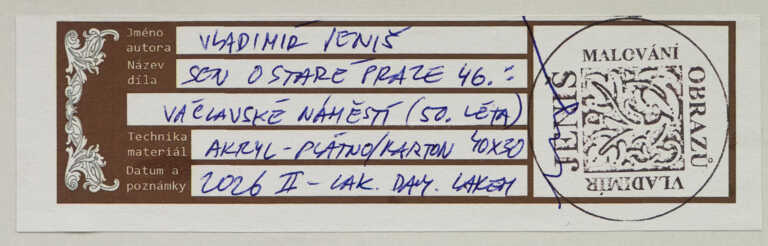 Jméno
autora
VLADIMÍR JENIŠ
Název
díla
SEN O STARÉ PRAZE 46.:
VÁCLAVSKÉ NÁMĚSTÍ (50. LÉTA)
Technika
materiál
AKRYL-PLÁTNO/KARTON 40X30
Datum a
poznámky
2026 II - LAK. DAM. LAKEM
MALOVÁNÍ
OBRAZŮ
VLADIMÍR
JENIŠ